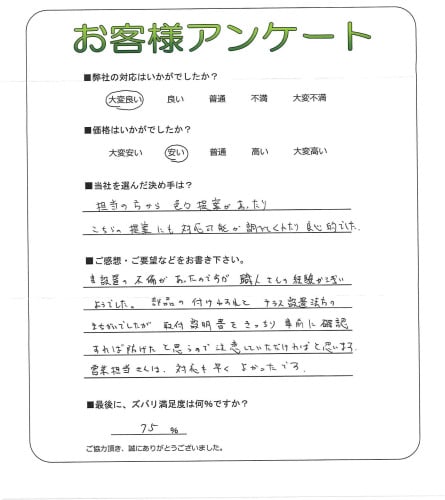 お客様アンケート
■弊社の対応はいかがでしたか?
大変良い 良い 普通 不満 大変不満
■価格はいかがでしたか?
大変安い 安い 普通 高い 大変高い
■当社を選んだ決め手は?
担当の方から 色々提案があったり
こちらの提案にも対応可能か調べてくれたり良心的でした。
■ご感想・ご要望などをお書き下さい。
設置の不備があったのですが 職人さんの経験が浅い
ようでした。部品の付け忘れと テラス設置方法の
まちがいでしたが 取付説明書をきっちり事前に確認
すれば防げたと思うので注意していただければと思います。
営業担当さんは、対応も早く よかったです。
■最後に、ズバリ満足度は何%ですか?
75 %
ご協力頂き、誠にありがとうございました。